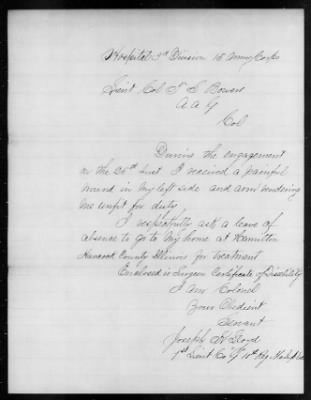 Hospital 3d Division 16 Army Corps
Lieut Col T S Bowers
A A G
Col
During the engagement
on the 26th Inst I received a painful
wound in my left side and arm rendering
me unfit for duty
I respectfully ask a leave of
absence to go to My home at Hamilton
Hancock County Illinois for treatment
Enclosed is Surgeon Certificate of Disability
I am Colonel
Your Obedient
Servant
Joseph H Lloyd
1st Lieut Co G 10th Reg